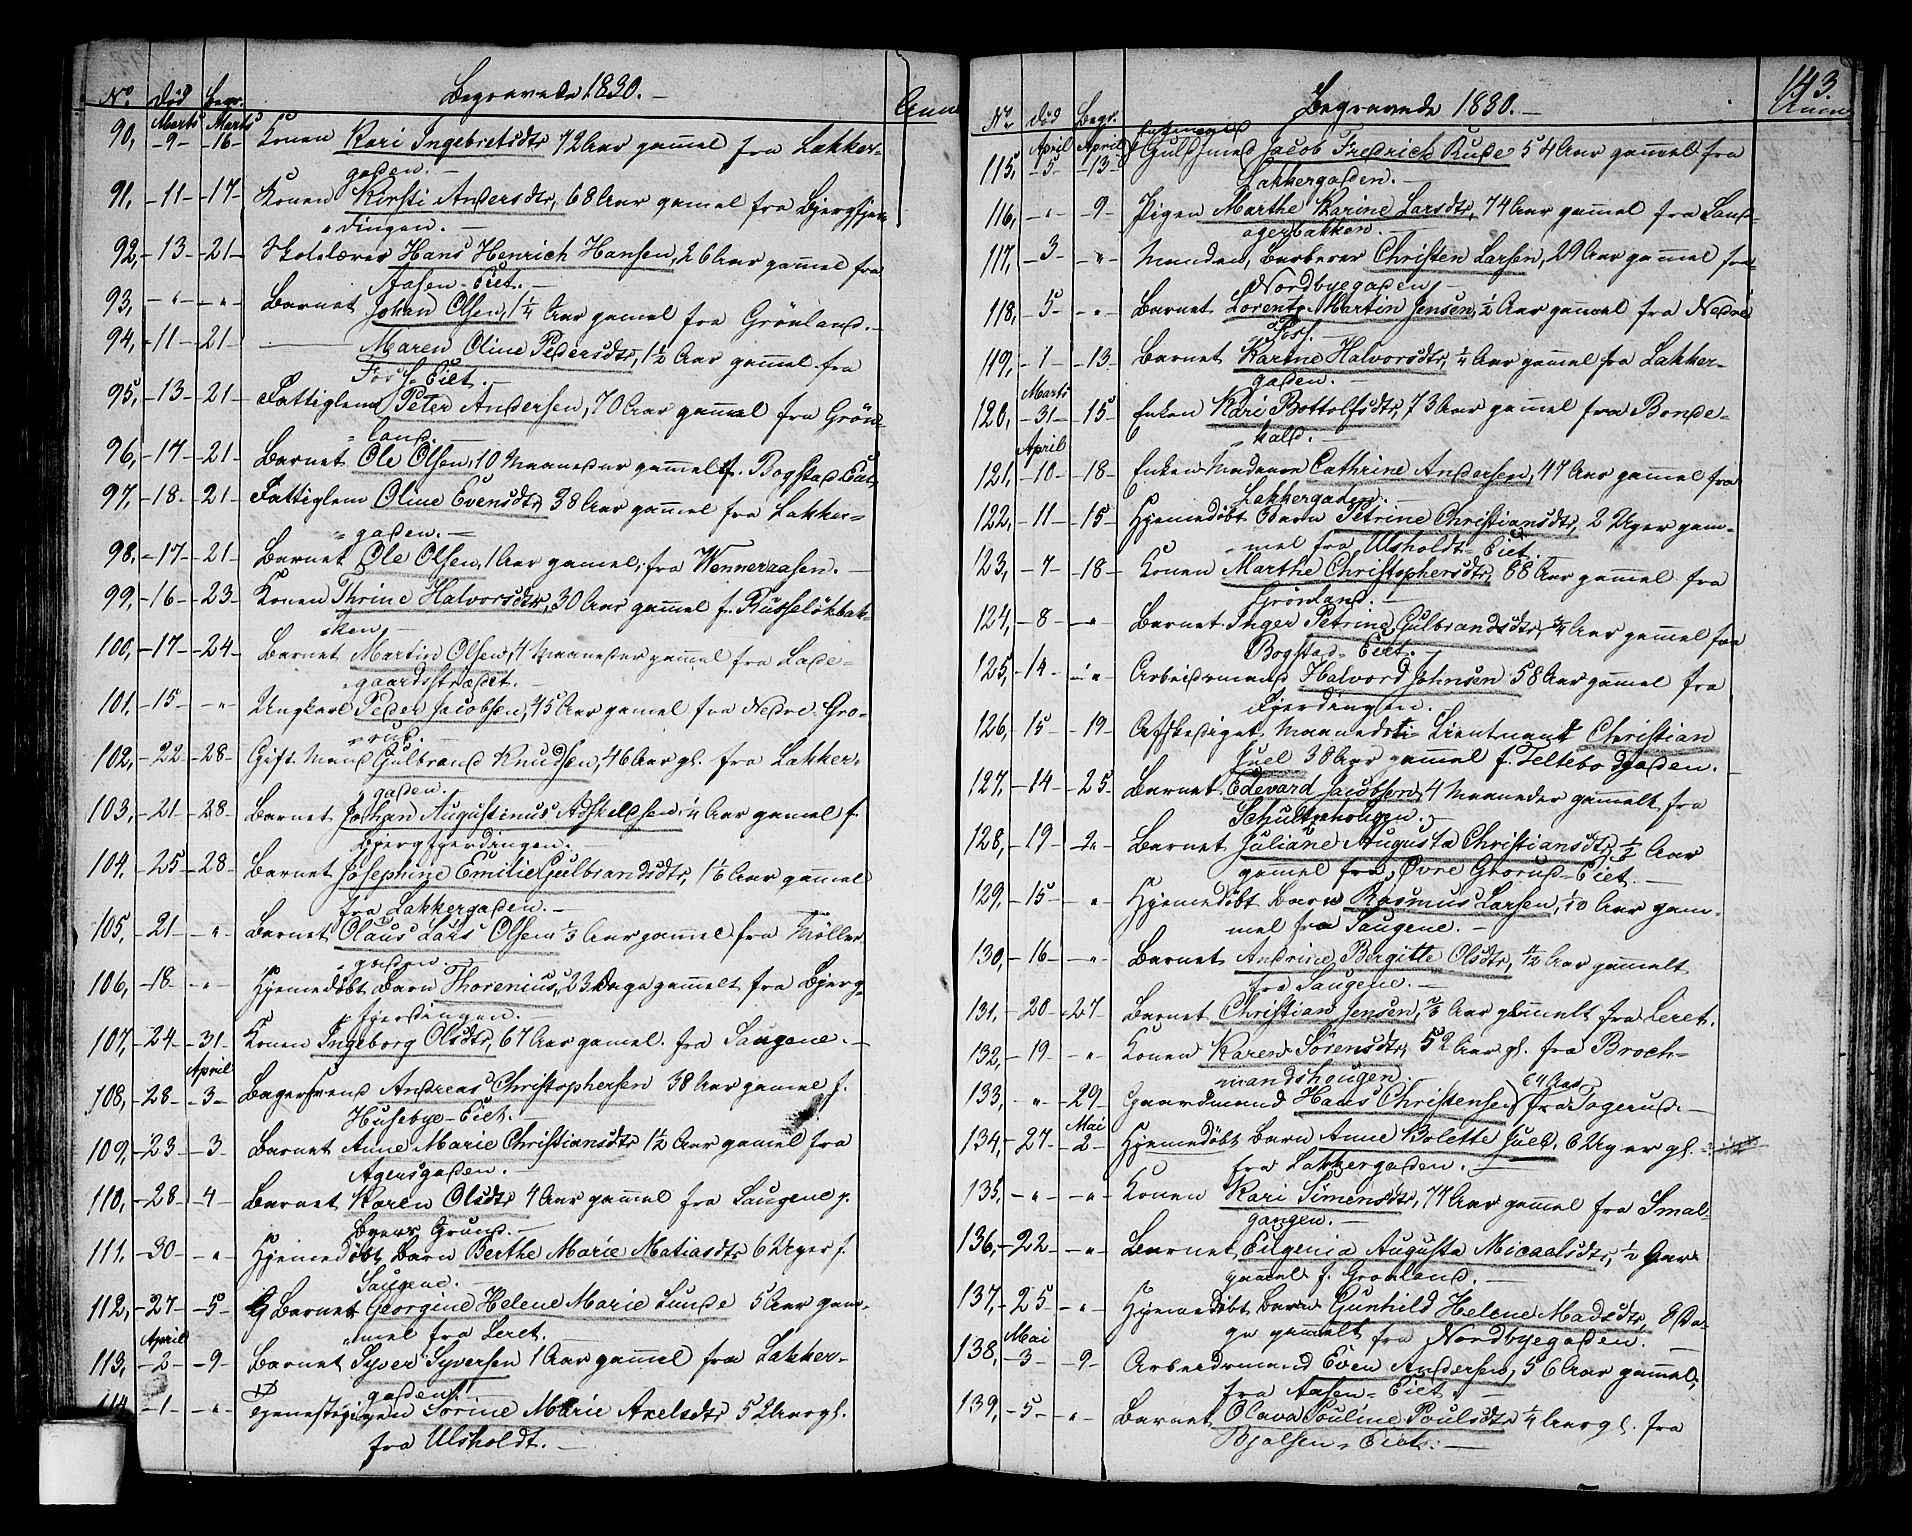 Begravede 1830.
No Død Begr. Anm
90, Marts -9- Marts -16- Konen Kari Ingebretsdtr 72 Aar gamel fra Lakker-
gaden.
91, -11- -17- Konen Kirsti Andersdtr, 68 Aar gamel fra Bjergfjer
dingen.
92, -13- -21- Skolelærer Hans Henrich Hansen, 26 Aar gamel fra
Aasen-Eiet.
93, -"- -"- Barnet Johan Olsen, 1 1/4 Aar gamel fra Grönland.
94, -11- -21- Maren Oline Pedersdtr, 1 1/2 Aar gamel fra
Foss-Eiet.
95, -13- -21- Fattiglem Peter Andersen, 70 Aar gammel fra Grön-
land.
96, -17- -21- Barnet Ole Olsen, 10 Maaneder gammelt f. Bogstad Eiet
97, -18- -21- Fattiglem Oline Evensdtr 38 Aar gammel fra Lakker-
gaden.
98, -17- -21- Barnet Ole Olsen, 1 Aar gamel, fra Wenneraasen.
99, -16- -23- Konen Thrine Halvorsdtr, 30 Aar gammel f. Russeløkbak-
ken
100, -17- -24- Barnet Martin Olsen, 4 Maaneder gammel fra Lade-
gaardsstrædet.
101, -15- -"- Ungkarl Peder Jacobsen, 45 Aar gamel fra Nedre-Gro-
rud.
102, -22- -28- Gift Mand Gulbrand Knudsen, 46 Aar gl. fra Lakker-
gaden.
103, -21- -28- Barnet Johan Augustinus Adskeldsen, 1/4 Aar gamel f.
Bjergfjerdingen.
104, -25- -28- Barnet Josephine Emilie Gulbrandsdtr, 1 1/6 Aar gamel
fra Lakkergaden.
105, -21- -"- Barnet Olaus Lars Olsen 1/3 Aar gammel fra Møller
gaden.
106, -18- -"- Hjemedøbt Barn Thorenius, 23 Dage gammelt fra Bjerg-
fjerdingen.
107, -24- -31- Konen Ingeborg Olsdtr, 67 Aar gamel. fra Saugene.
108, -28- April -3- Bagersvend Andreas Christophersen 38 Aar gamel f.
Husebye-Eiet.
109, -23- -3- Barnet Anne Marie Christiansdtr 1 1/2 Aar gamel fra
Agersgaden.
110, -28- -4- Barnet Karen Olsdtr 4 Aar gammel fra Saugene p.
Byens Grund.
111. -30- -"- Hjemedøbt Barn Berthe Marie Matiasdtr 6 Uger f.
Saugene.
112, -27- -5- Barnet Georgine Helene Marie Lunde 5 Aar gam-
mel fra Leret.
113, April -2- -9- Barnet Syver Syversen 1 Aar gammel fra Lakker-
gaden.
114 -1- -"- Tjenestepigen Sorine Marie Axelsdtr 52 Aar gl.
fra Ulsholdt.
143.
Begravede 1830.
No Død Begr. Anm
115, April -5- April -13- Guldsmed Jacob Fredrich Rude 54 Aar gammel fra
Lakkergaden.
116, -"- -9- Pigen Marthe Karine Larsdtr, 74 Aar gammel fra Sand
agerbakken.
117, -3- -"- Manden, Barberer Christen Larsen, 29 Aar gammel fra
Nordbyegaden
118, -5- -"- Barnet Lorentz Martin Jensen, 1/2 Aar gammel fra Nedre
Foss.
119, -1- -13- Barnet Karine Halvorsdtr, 1/4 Aar gammel fra Lakker-
gaden.
120, Marts -31- -15- Enken Kari Bottolfsdtr, 73 Aar gammel fra Bonde-
hald.
121, April -10- -18- Enken Madame Cathrine Andersen, 47 Aar gammel fra
Lakkergaden.
122, -11- -15- Hjemedøbt Barn Petrine Christiansdtr, 2 Uger gam-
mel fra Ulsholdt-Eiet.
123, -7- -18- Konen Marthe Christophersdtr, 88 Aar gammel fra
Grönland.
124, -8- -"- Barnet Inger Petrine Gulbrandsdtr, 3/4 Aar gammel fra
Bogstad-Eiet.
125, -14- -"- Arbeidsmand Halvord Johnsen 58 Aar gammel fra
Fjerdingen.
126, -15- -19- Afskediget Maaneds Lieutnant Christian
Juel 38 Aar gammel f. Teltebodgaden.
127, -14- -25- Barnet Edevard Jacobsen, 4 Maaneder gammelt fra
Schultzehougen.
128, -19- -"- Barnet Juliane Augusta Christiansdtr 1/2 Aar
gamel fra Øvre Grorud-Eiet.
129, -15- -"- Hjemedøbt Barn Rasmus Larsen, 1/10 Aar gam-
mel fra Saugene.
130, -16- -"- Barnet Andrine Bergitte Olsdtr, 1/2 Aar gammelt
fra Saugene.
131, -20- -27- Barnet Christian Jensen, 2/3 Aar gammelt fra Leret.
132, -19- -"- Konen Karen Sörensdtr, 52 Aar gl. fra Broch-
mandshougen.
133, -"- -29- Gaardmand Hans Christensen 64 Aar fra Togerud.
134, -27- Mai -2- Hjemedøbt Barn Anne Bolette Juel, 6 Uger gl.
fra Lakkergaden.
135, -"- -"- Konen Kari Simensdtr, 74 Aar gammel fra Smal-
gangen.
136, -22- -"- Barnet Eugenia Augusta Micaelsdtr, 1/2 Aar
gammel f. Grønland.
137, -25- -"- Hjemedøbt Barn Gunhild Helene Madsdtr, 8 Da-
ge gammelt fra Nordbyegaden.
138, Mai -3- -9- Arbeidsmand Even Andersen, 56 Aar gammel,
fra Aasen-Eiet.
139, -5- -"- Barnet Olava Pouline Poulsdtr 1/4 Aar gl. fra
Bjølsen-Eiet.